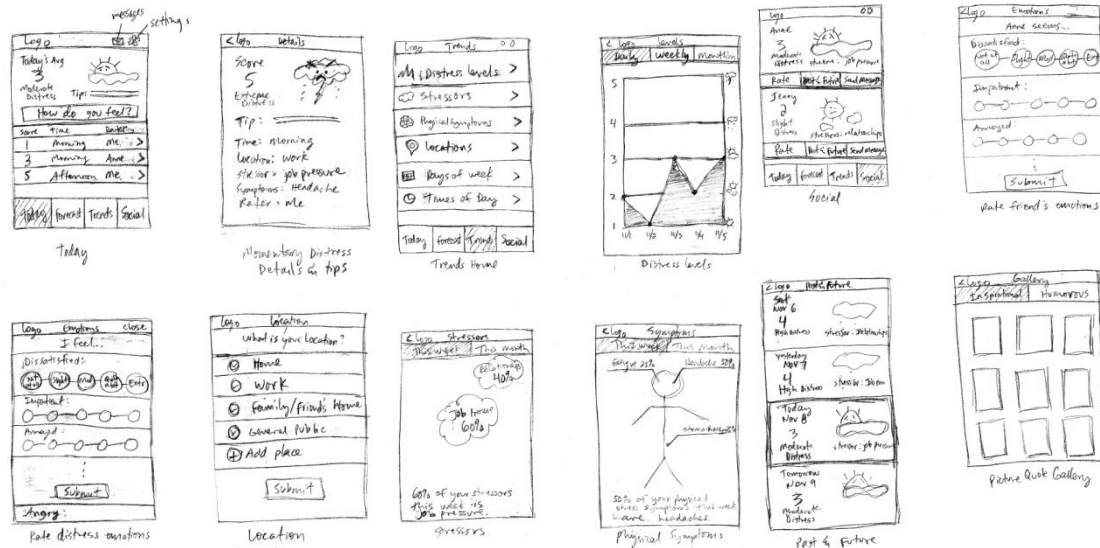 messages
settings
Logo
Today's Avg
3
Moderate
Distress
Tips:
How do you feel?
Score Time Rater
1 Morning Me >
3 Morning Anne >
5 Afternoon Me >
Today Forecast Trends Social
Today
< Logo Details
Score
5
Extreme
Distress
Tip:
Time: Morning
Location: Work
Stressor: job pressure
Symptoms: Headache
Rater: me
Momentary Distress
Details & tips
Logo Trends
Distress levels >
Stressors >
Physical symptoms >
Locations >
Days of week >
Times of Day >
Today Forecast Trends Social
Trends Home
< Logo levels
Daily Weekly Monthly
5
4
3
2
1
11/1 11/2 11/3 11/4 11/5
Distress levels
Logo
Anne
3
Moderate
Distress
stressor: job pressure
Rate Past & Future Send Message
Jenny
2
Slight
Distress
stressors: relationships
Rate Past & Future Send Message
Today Forecast Trends Social
Social
< Logo Emotions
Anne seems...
Dissatisfied:
Not at all Slight Mod Quite a bit Extr
Impatient:
Annoyed:
Submit
Rate friend's emotions
Logo Emotions close
I feel...
Dissatisfied:
Not at all Slight Mod Quite a bit Extr
Impatient:
Annoyed:
Submit
Angry:
Rate distress emotions
Logo Location
What is your location?
Home
Work
Family/Friend's Home
General Public
Add place
Submit
Location
< Logo Stressors
This week This month
Relationship
40%
Job pressure
60%
60% of your stressors
this week is
Job pressure.
Stressors
< Logo Symptoms
This week This month
Fatigue 25%
Headache 50%
Stomachache 25%
50% of your physical
stress symptoms this week
are headaches
Physical Symptoms
< Logo Past & Future
Sat
Nov 6
4
High Distress
stressor: Relationships
Yesterday
Nov 7
4
High Distress
Today
Nov 8
3
Moderate
Distress
stressor: job pressure
Tomorrow
Nov 9
3
Moderate
Distress
Past & Future
< Logo Gallery
Inspirational Humorous
Picture Quote Gallery